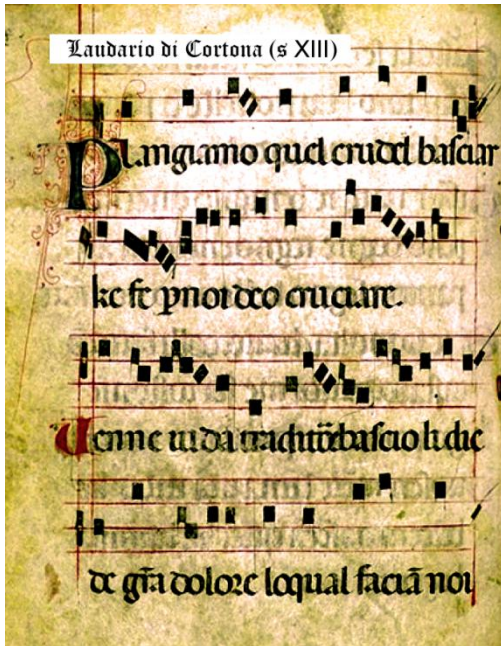 Laudario di Cortona (s XIII)
Plangiamo quel crudel basciar
ke fe pnoi deo cruciare.
Uenne iuda traditore bascio li die
de grã dolore loqual faciã noi